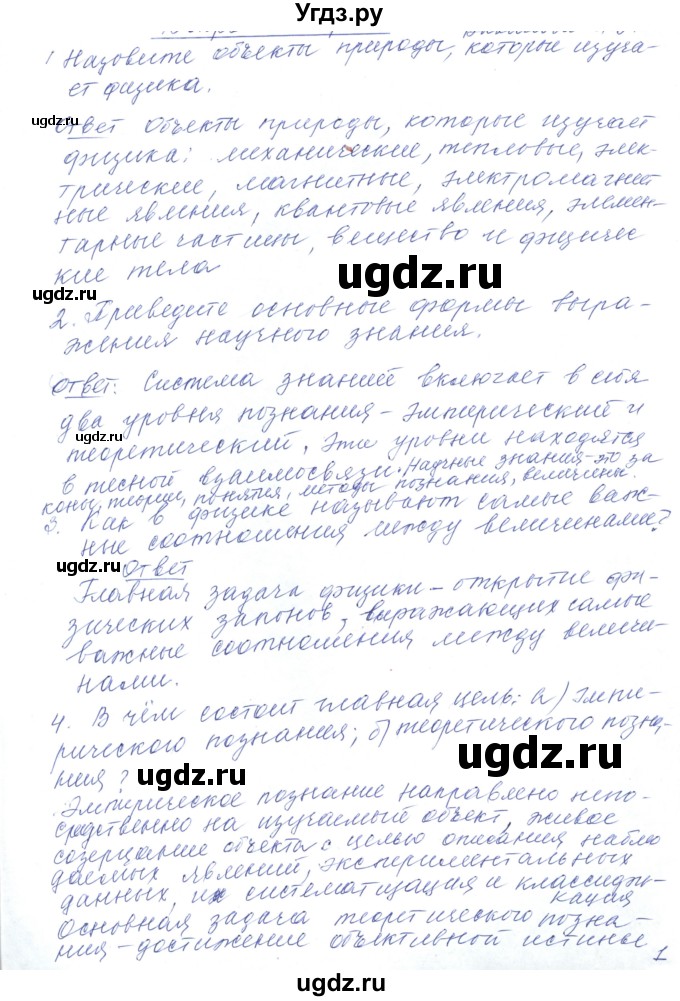 Угдз.ру
1 Назовите объекты природы, которые изуча-
ет физика.
ugdz.ru
Ответ Объекты природы, которые изучает
физика: механические, тепловые, элек-
трические, магнитные, электромагнит
ные явления, квантовые явления, элемен-
тарные частицы, вещество и физичес
кие тела
ugdz.ru
ugdz.ru
2. Приведите основные формы выра-
жения научного знания.
Ответ: Система знаний включает в себя
два уровня познания - эмпирический и
ugdz.ru
теоретический. Эти уровни находятся
в тесной взаимосвязи. Научные знания - это за
коны, теории, понятия, методы познания, величины.
3. Как в физике называют самые важ-
ные соотношения между величинами?
ugdz.ru
Ответ
Главная задача физики - открытие фи-
зических законов, выражающих самые
важные соотношения между величи-
нами.
4. В чём состоит главная цель: а) эмпи-
рического познания; б) теоретического позна-
ния?
ugdz.ru
ugdz.ru
Эмпирическое познание направлено непо-
средственно на изучаемый объект, живое
созерцание объекта с целью описания наблю
даемых явлений, экспериментальных
данных, их систематизация и классифи-
кация
Основная задача теоретического позна-
ния - достижение объективной истины
1
ugdz.ru